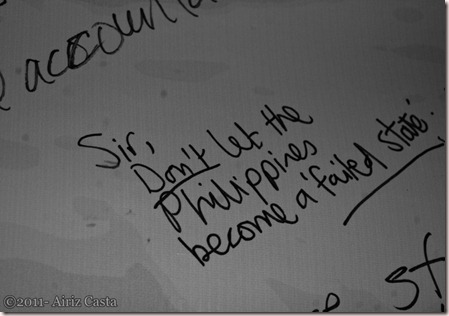 accounta
Sir,
Don't let the
Philippines
become a 'failed state'.
st
©2011- Airiz Casta